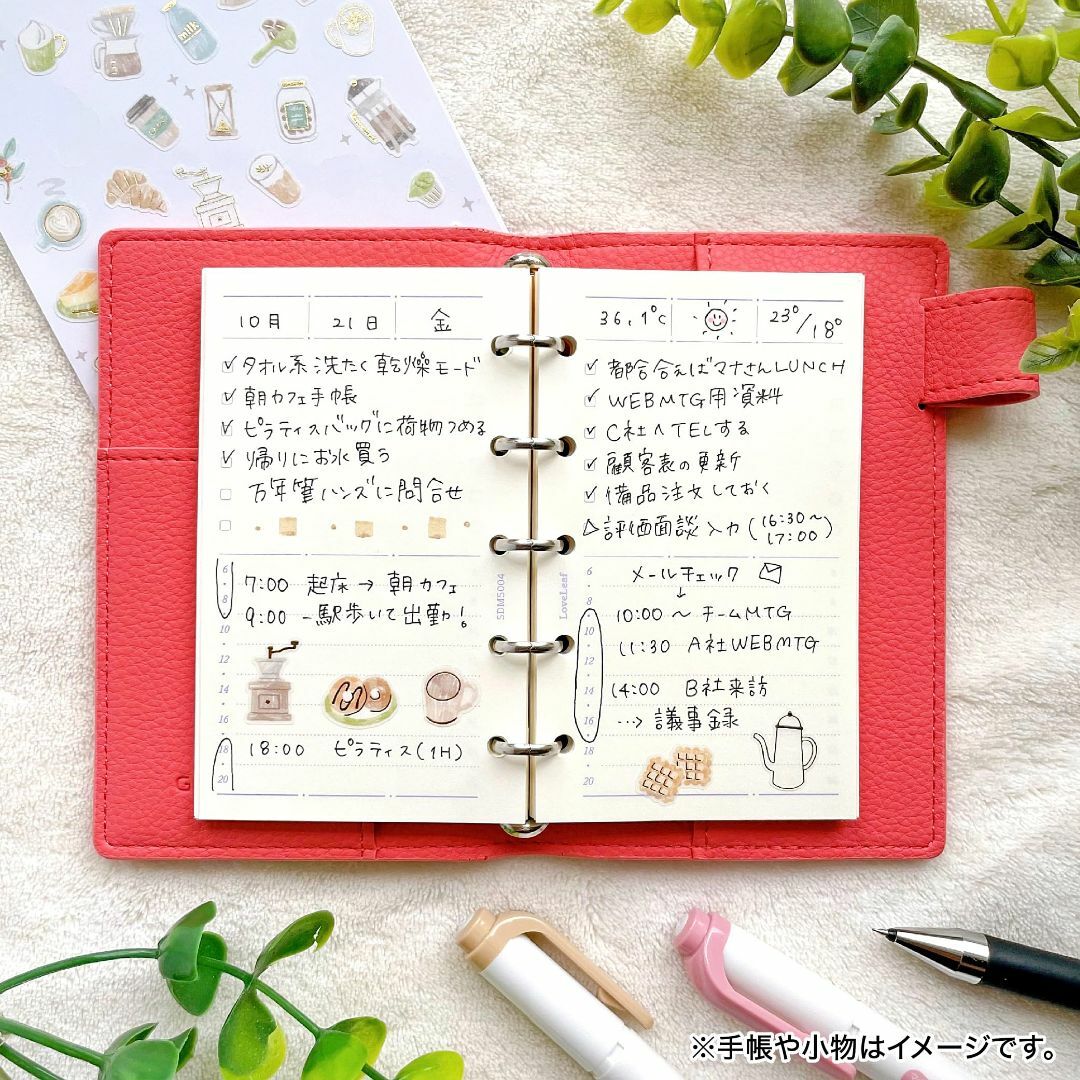 milk
10月 21日 金
✓タオル系洗たく乾燥モード
✓朝カフェ手帳
✓ピラティスバッグに荷物つめる
✓帰りにお水買う
□万年筆ハンズに問合せ
□
6
8
10
12
14
16
18
20
7:00 起床→朝カフェ
9:00 一駅歩いて出勤!
18:00 ピラティス(1H)
G
SDM5004
LoveLeaf
36.1℃ 23°/18°
✓都合合えばマナさんLUNCH
✓WEBMTG用資料
✓C社へTELする
✓顧客表の更新
✓備品注文しておく
△評価面談入力(16:30〜17:00)
6
8
10
12
14
16
18
20
メールチェック
↓
10:00〜チームMTG
11:30 A社WEBMTG
14:00 B社来訪
…→議事録
※手帳や小物はイメージです。